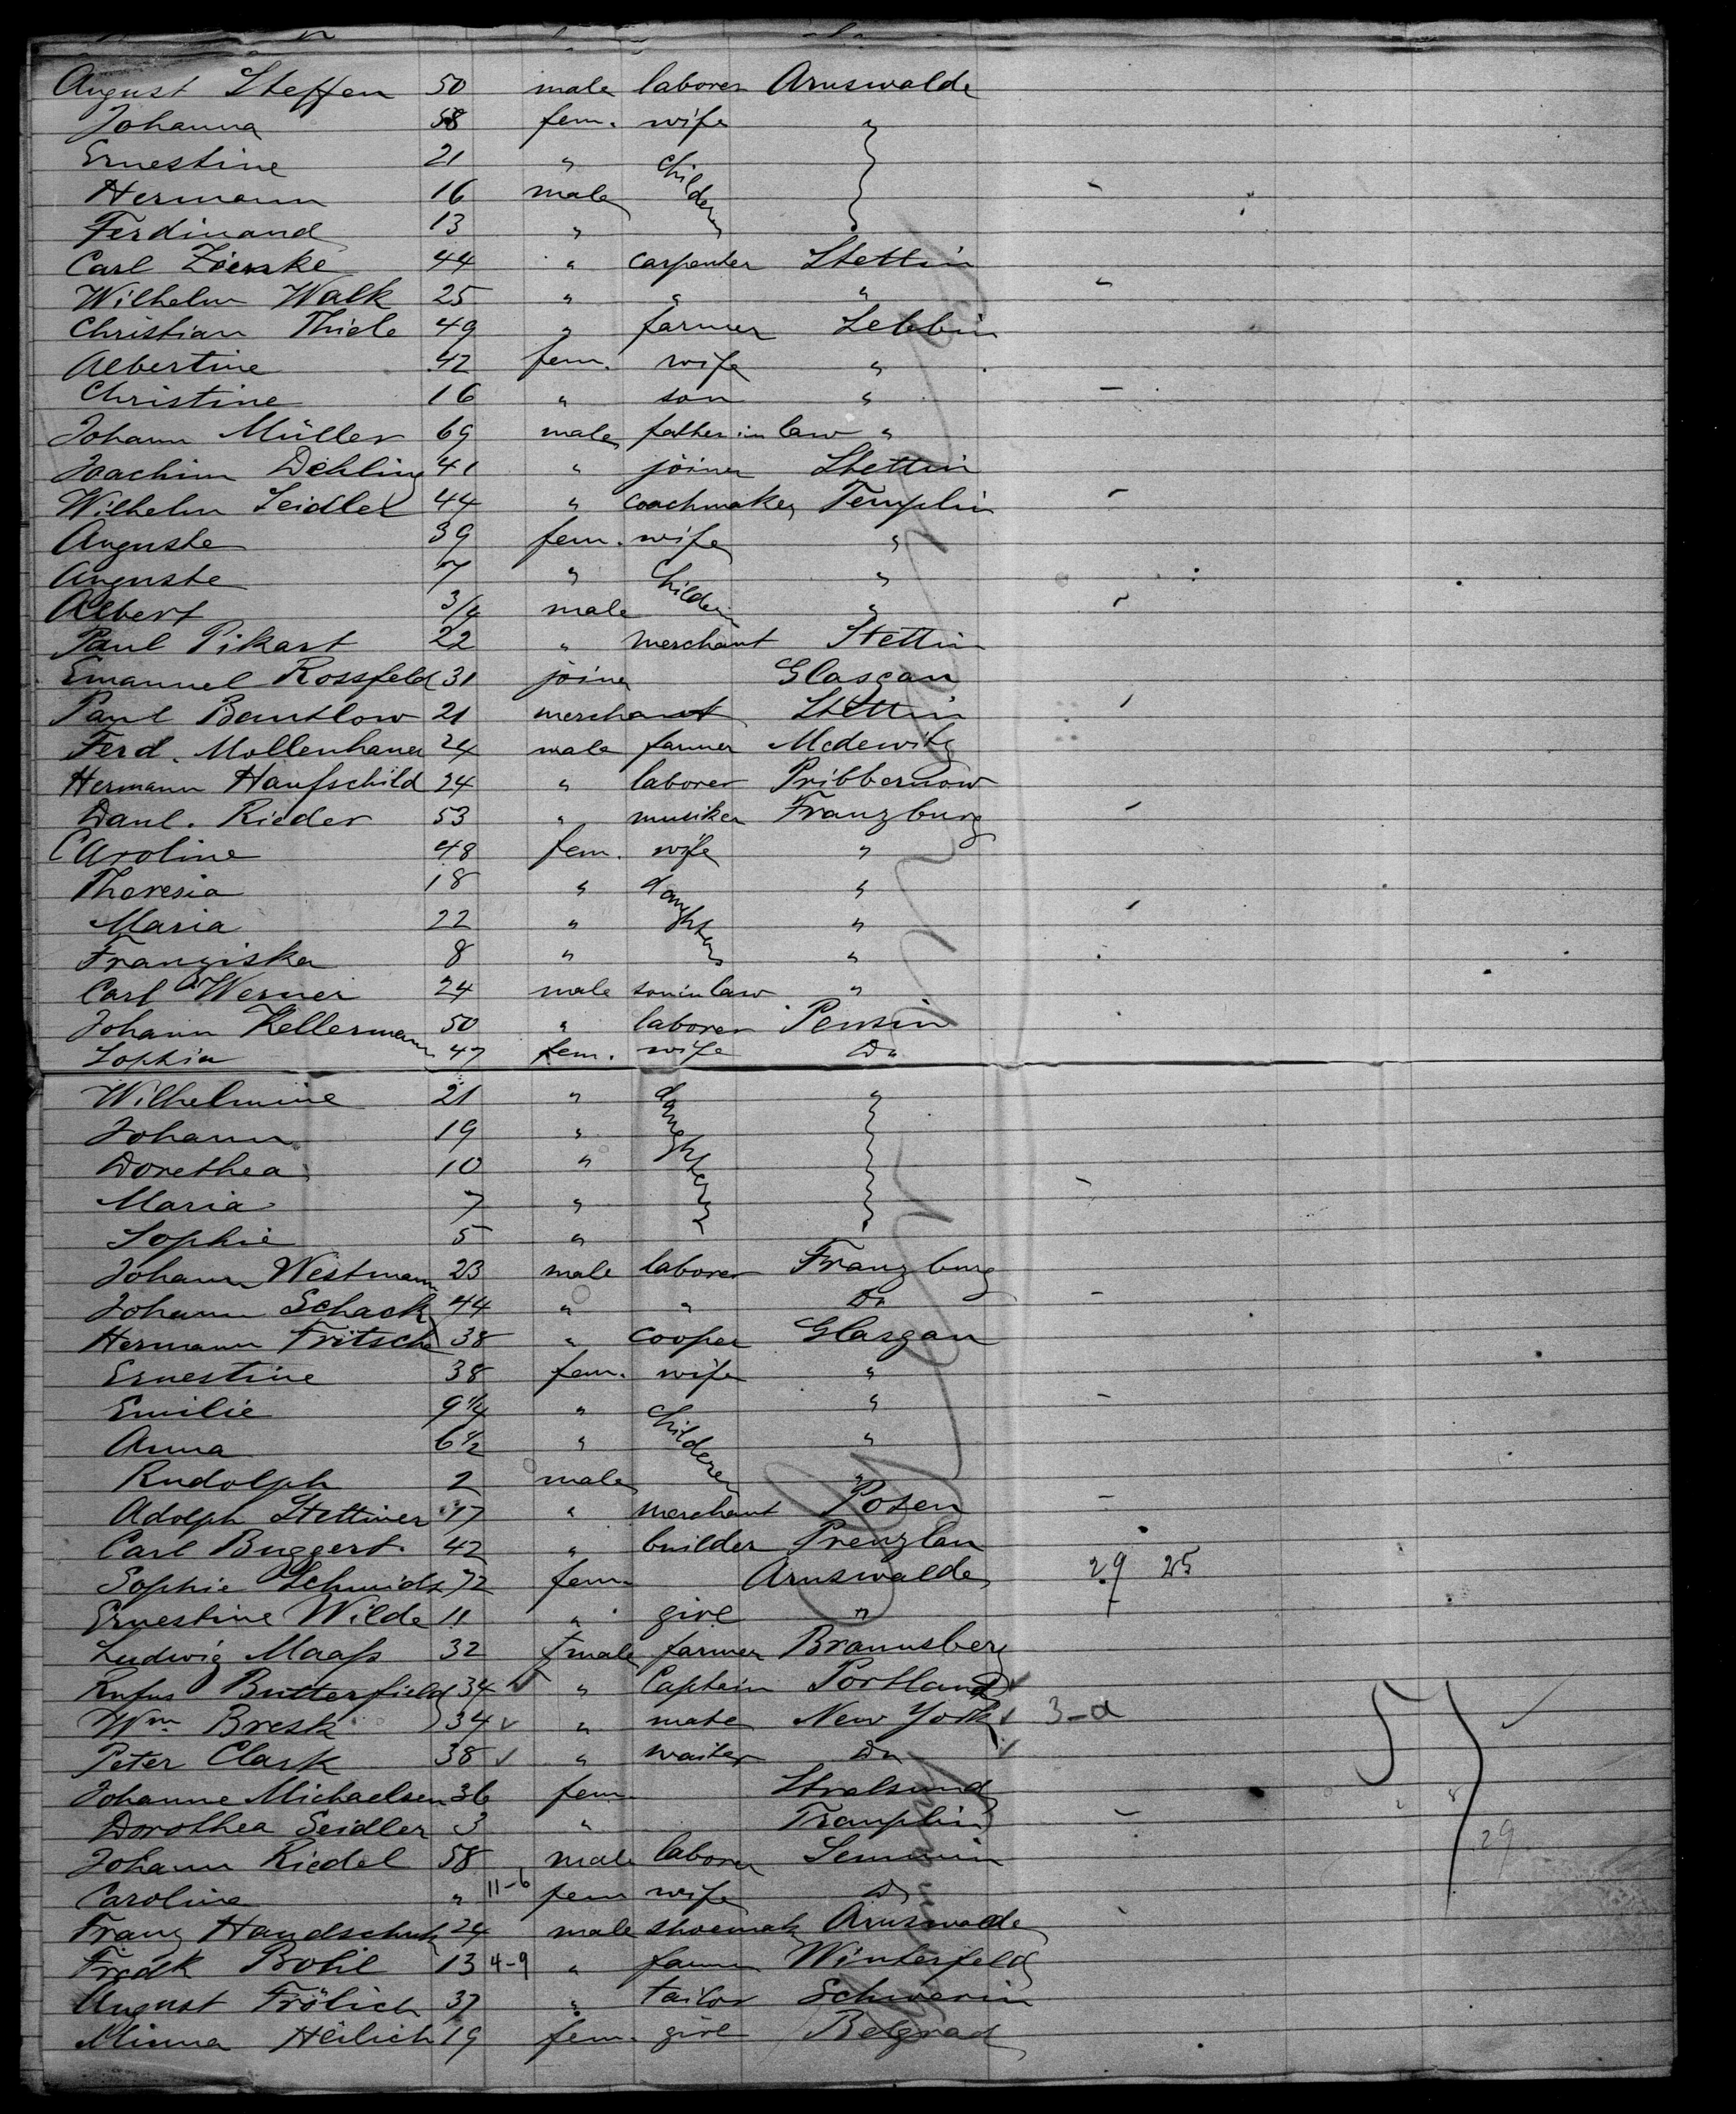 August Steffen 50 male laborer Arnswalde
Johanna 58 fem. wife "
Ernestine 21 " children
Hermann 16 male
Ferdinand 13 " "
Carl 44 " carpenter Stettin
Wilhelm Walk 25 " " "
Christian Thiele 49 " farmer Lebbin
Albertine 42 fem. wife "
Christine 16 " son "
Johann Müller 69 male father in law "
Joachim Dehling 41 " joiner Stettin
Wilhelm Seidler 44 " coachmaker Templin
Auguste 39 fem. wife "
Auguste 7 " children "
Albert 3/4 male "
Paul Pikart 22 " merchant Stettin
Emanuel Rossfeld 31 joiner Glasgau
Paul Bantlow 21 merchant Stettin
Ferd. Mollenhauer 24 male farmer Medewitz
Hermann Haufschild 24 " laborer Pribbernow
Danl. Rieder 53 " musiker Franzburg
Caroline 48 fem. wife "
Theresia 18 " daughters "
Maria 22 " "
Franziska 8 " "
Carl Werner 24 male son in law "
Johann Kellermann 50 " laborer Pensin
Sophia 47 fem. wife Do
Wilhelmine 21 " daughters "
Johann 19 "
Dorethea 10 "
Maria 7 "
Sophie 5 "
Johann Westmann 23 male laborer Franzburg
Johann Schack 44 " " Do
Hermann Fritsche 38 " cooper Glasgau
Ernestine 38 fem. wife "
Emilie 9 1/4 " children "
Anna 6 1/2 " "
Rudolph 2 male "
Adolph Stettiner 17 " merchant Posen
Carl Buggert 42 " builder Prenzlau
Sophie Schmidt 72 fem. Arnswalde 29 25
Ernestine Wilde 11 " girl "
Ludwig Maass 32 male farmer Braunsberg
Rufus Butterfield 34 " Captain Portland
Wm Bresk 34 " mate New York 3-a 57
Peter Clark 38 " waiter Do
Johanne Michaelsen 36 fem. Stralsund
Dorothea Seidler 3 " Templin 29
Johann Riedel 58 male laborer
Caroline " 11-6 fem wife Do
Franz Handschuh 24 male shoemak Arnswalde
Fredk Bohl 13 4-9 " farmer Winterfeld
August Frölich 37 " tailor Schwerin
Minna Heilich 19 fem. girl Belgrad